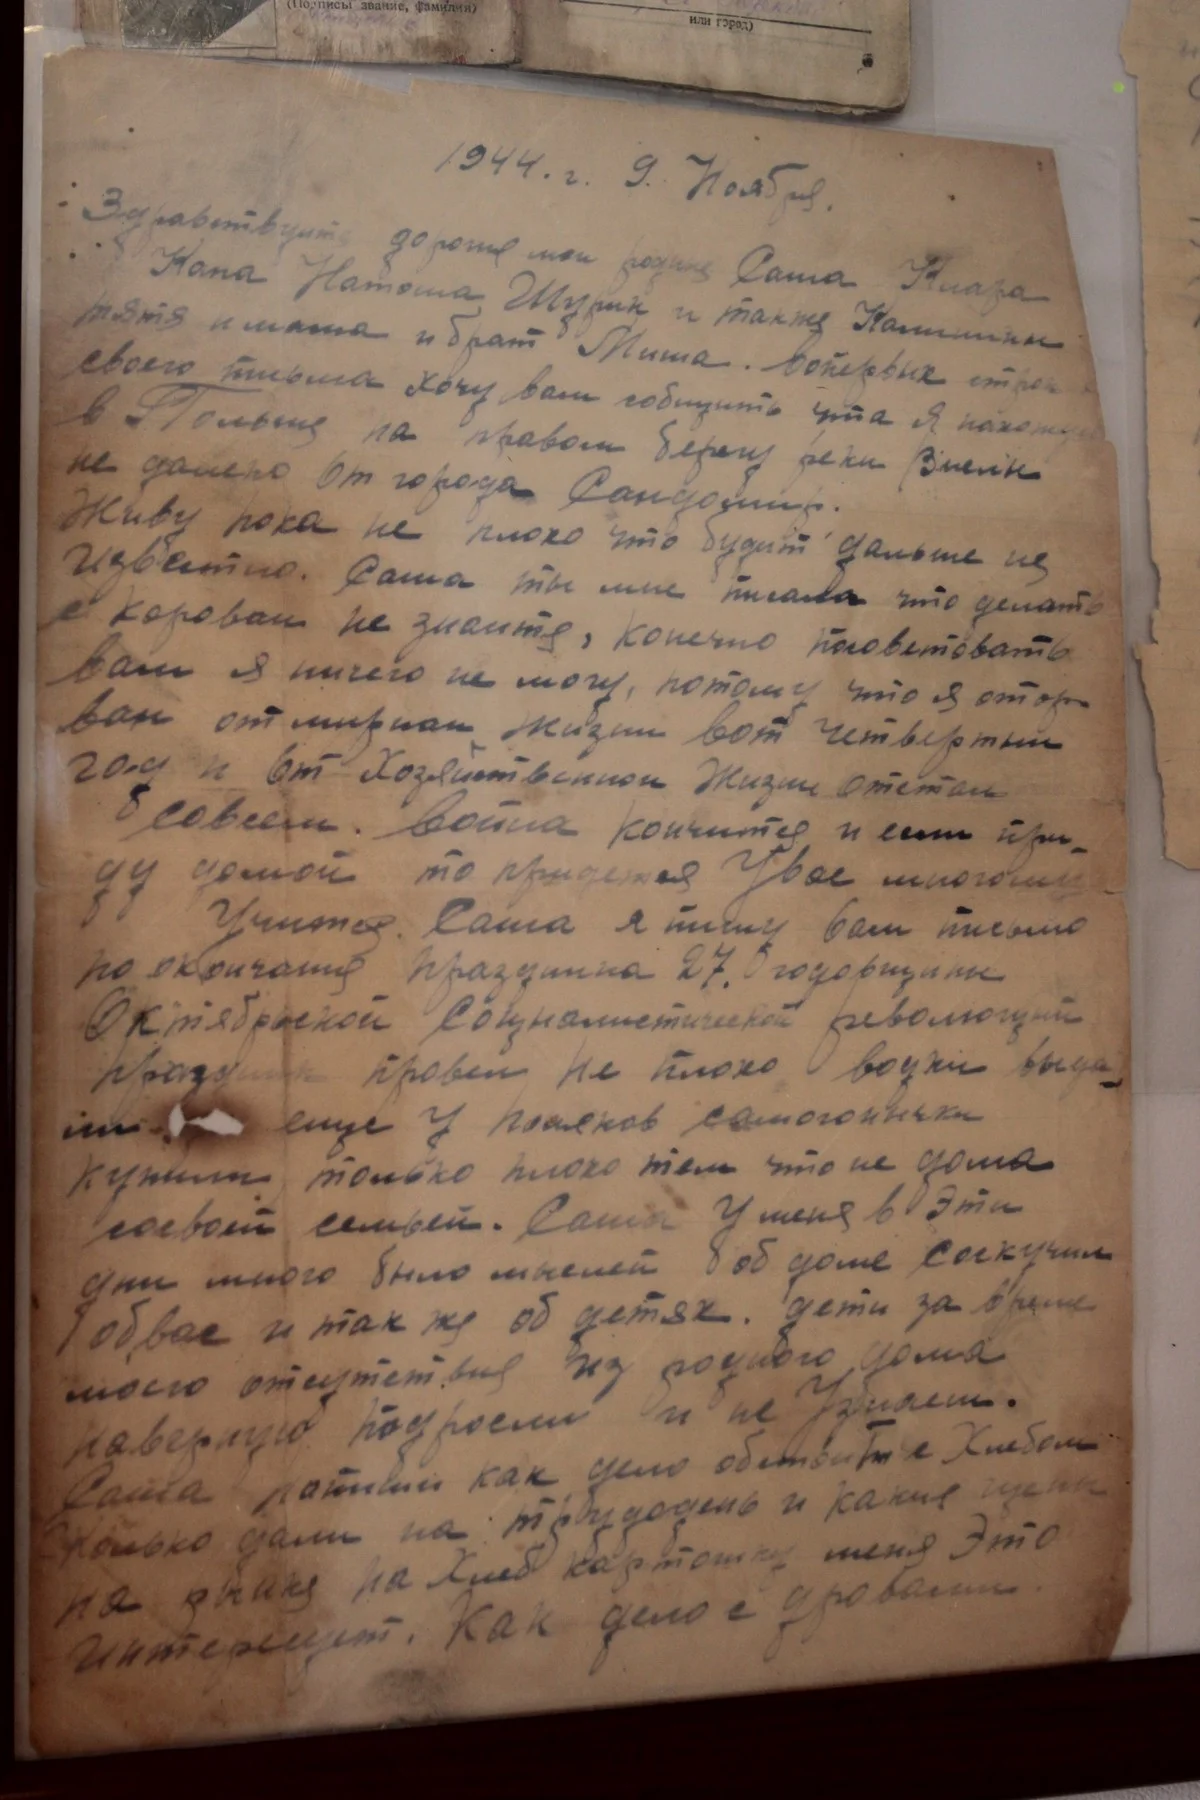 (Подписы звание, фамилия)
или город)
1944. г. 9. Ноября.
Здравствуйте дорогие мои родные Саша Клара
Капа Наташа Шурик и также Калинины
тятя и мама и брат Миша. Вопервых строк
своего письма хочу вам собщить што я нахожу
в Польше на правом берегу реки Вислы
не далеко от города Сандомир.
Живу пока не плохо что будит дальше не
известно. Саша ты мне писала что делать
с коровай не знаите, конечно посоветовать
вам я ничего не могу, потому что я отор
ван от мирнай жизни вот четвертый
год и от хозяйственной жизни отстал
совсем. Война кончится и если при-
ду домой то придется у вас многому
учится. Саша я пишу вам письмо
по окончание праздника 27. годовщины
Октябрьской Социалистической революций
праздник провел не плохо водки выда-
ли еще у поляков самогоначки
купили только плохо тем что не дома
сосвоей семьей. Саша у меня в эти
дни много было мыслей об доме соскучил
обвас и так же об детях. дети за время
моего отсутствия из родного дома
наверную подросли и не узнаеш.
Саша напиши как дело обстоит с хлебом
сколько дали на трудодень и какие цены
на рынке на хлеб картошку меня это
интересует. Как дело с дровами